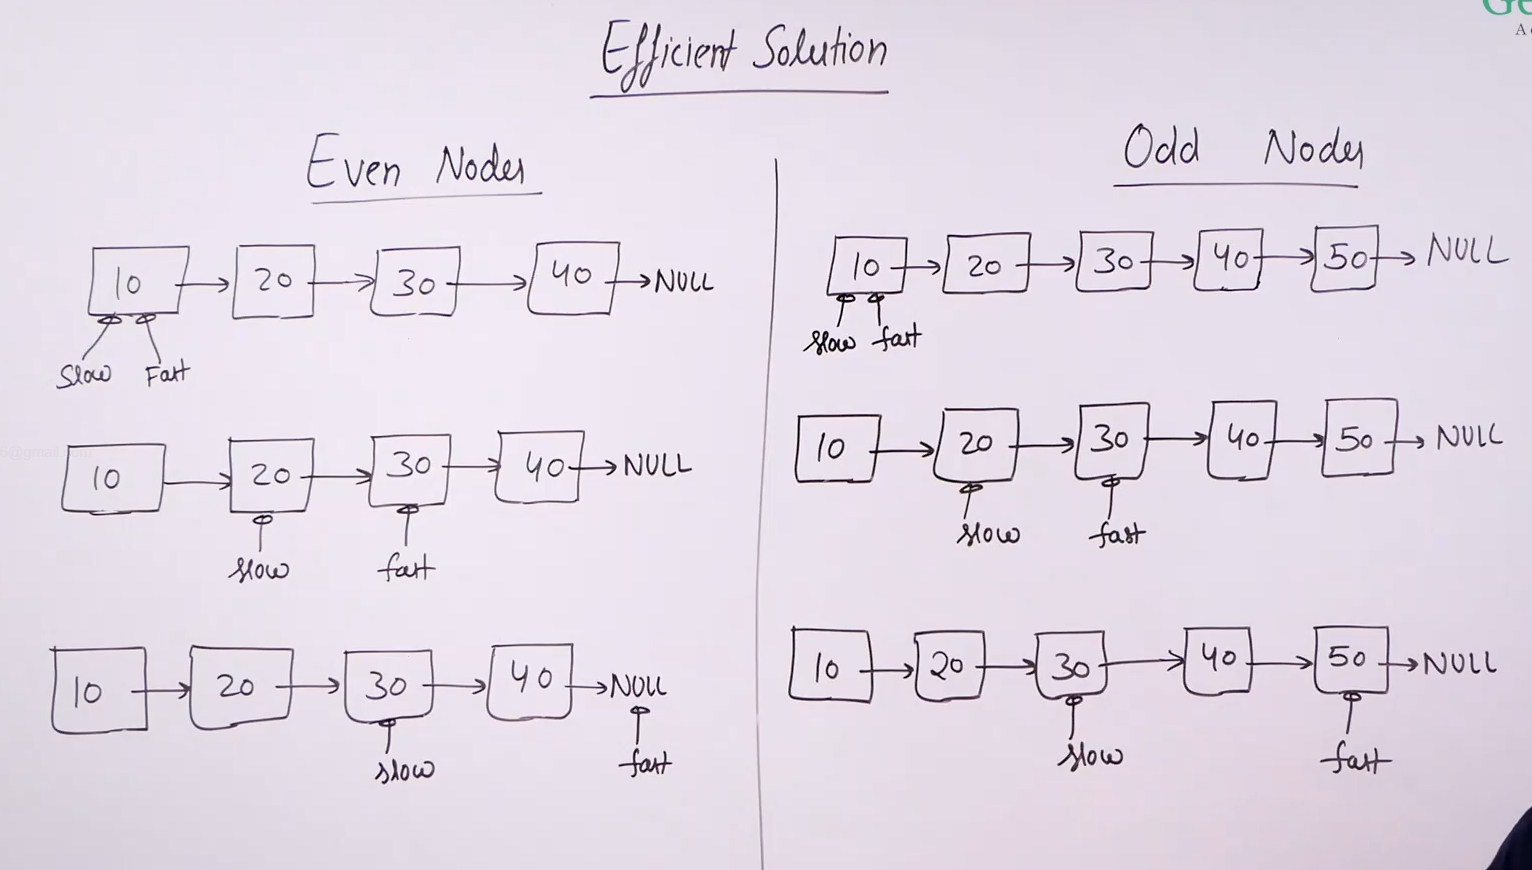 Efficient Solution
Even Nodes
10 → 20 → 30 → 40 → NULL
Slow Fast
10 → 20 → 30 → 40 → NULL
slow fast
10 → 20 → 30 → 40 → NULL
slow fast
Odd Nodes
10 → 20 → 30 → 40 → 50 → NULL
slow fast
10 → 20 → 30 → 40 → 50 → NULL
slow fast
10 → 20 → 30 → 40 → 50 → NULL
slow fast